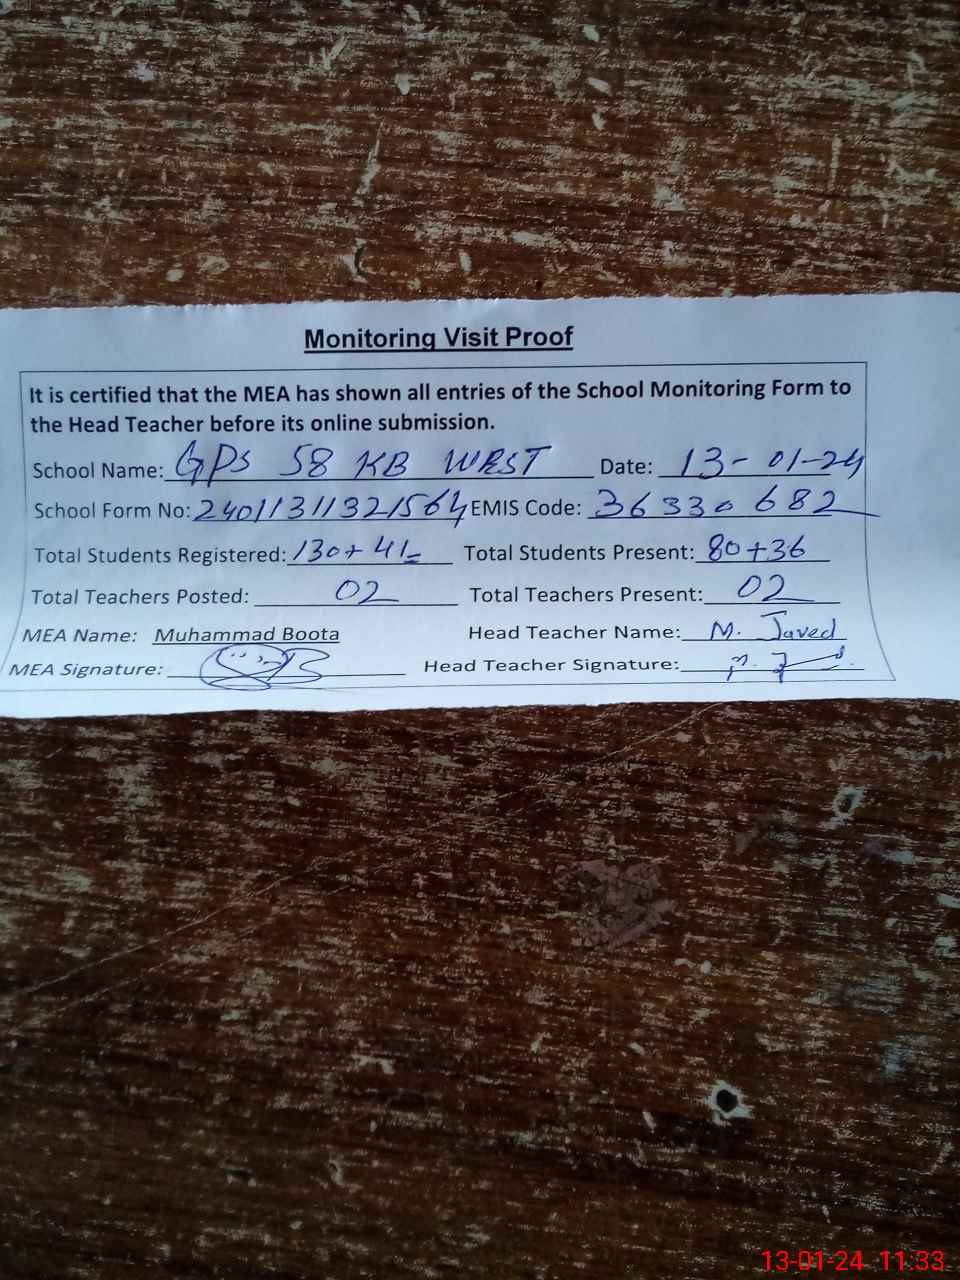 Monitoring Visit Proof
It is certified that the MEA has shown all entries of the School Monitoring Form to
the Head Teacher before its online submission.
School Name: GPS 58 KB WEST Date: 13-01-24
School Form No: 24011311321564 EMIS Code: 36330682
Total Students Registered: 130+41 Total Students Present: 80+36
Total Teachers Posted: 02 Total Teachers Present: 02
MEA Name: Muhammad Boota Head Teacher Name: M. Javed
MEA Signature: Head Teacher Signature:
13-01-24 11:33